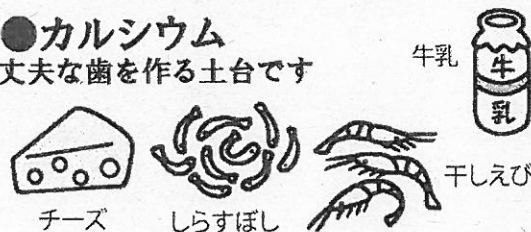 ●カルシウム
丈夫な歯を作る土台です
牛乳
牛
乳
チーズ
しらすぼし
干しえび